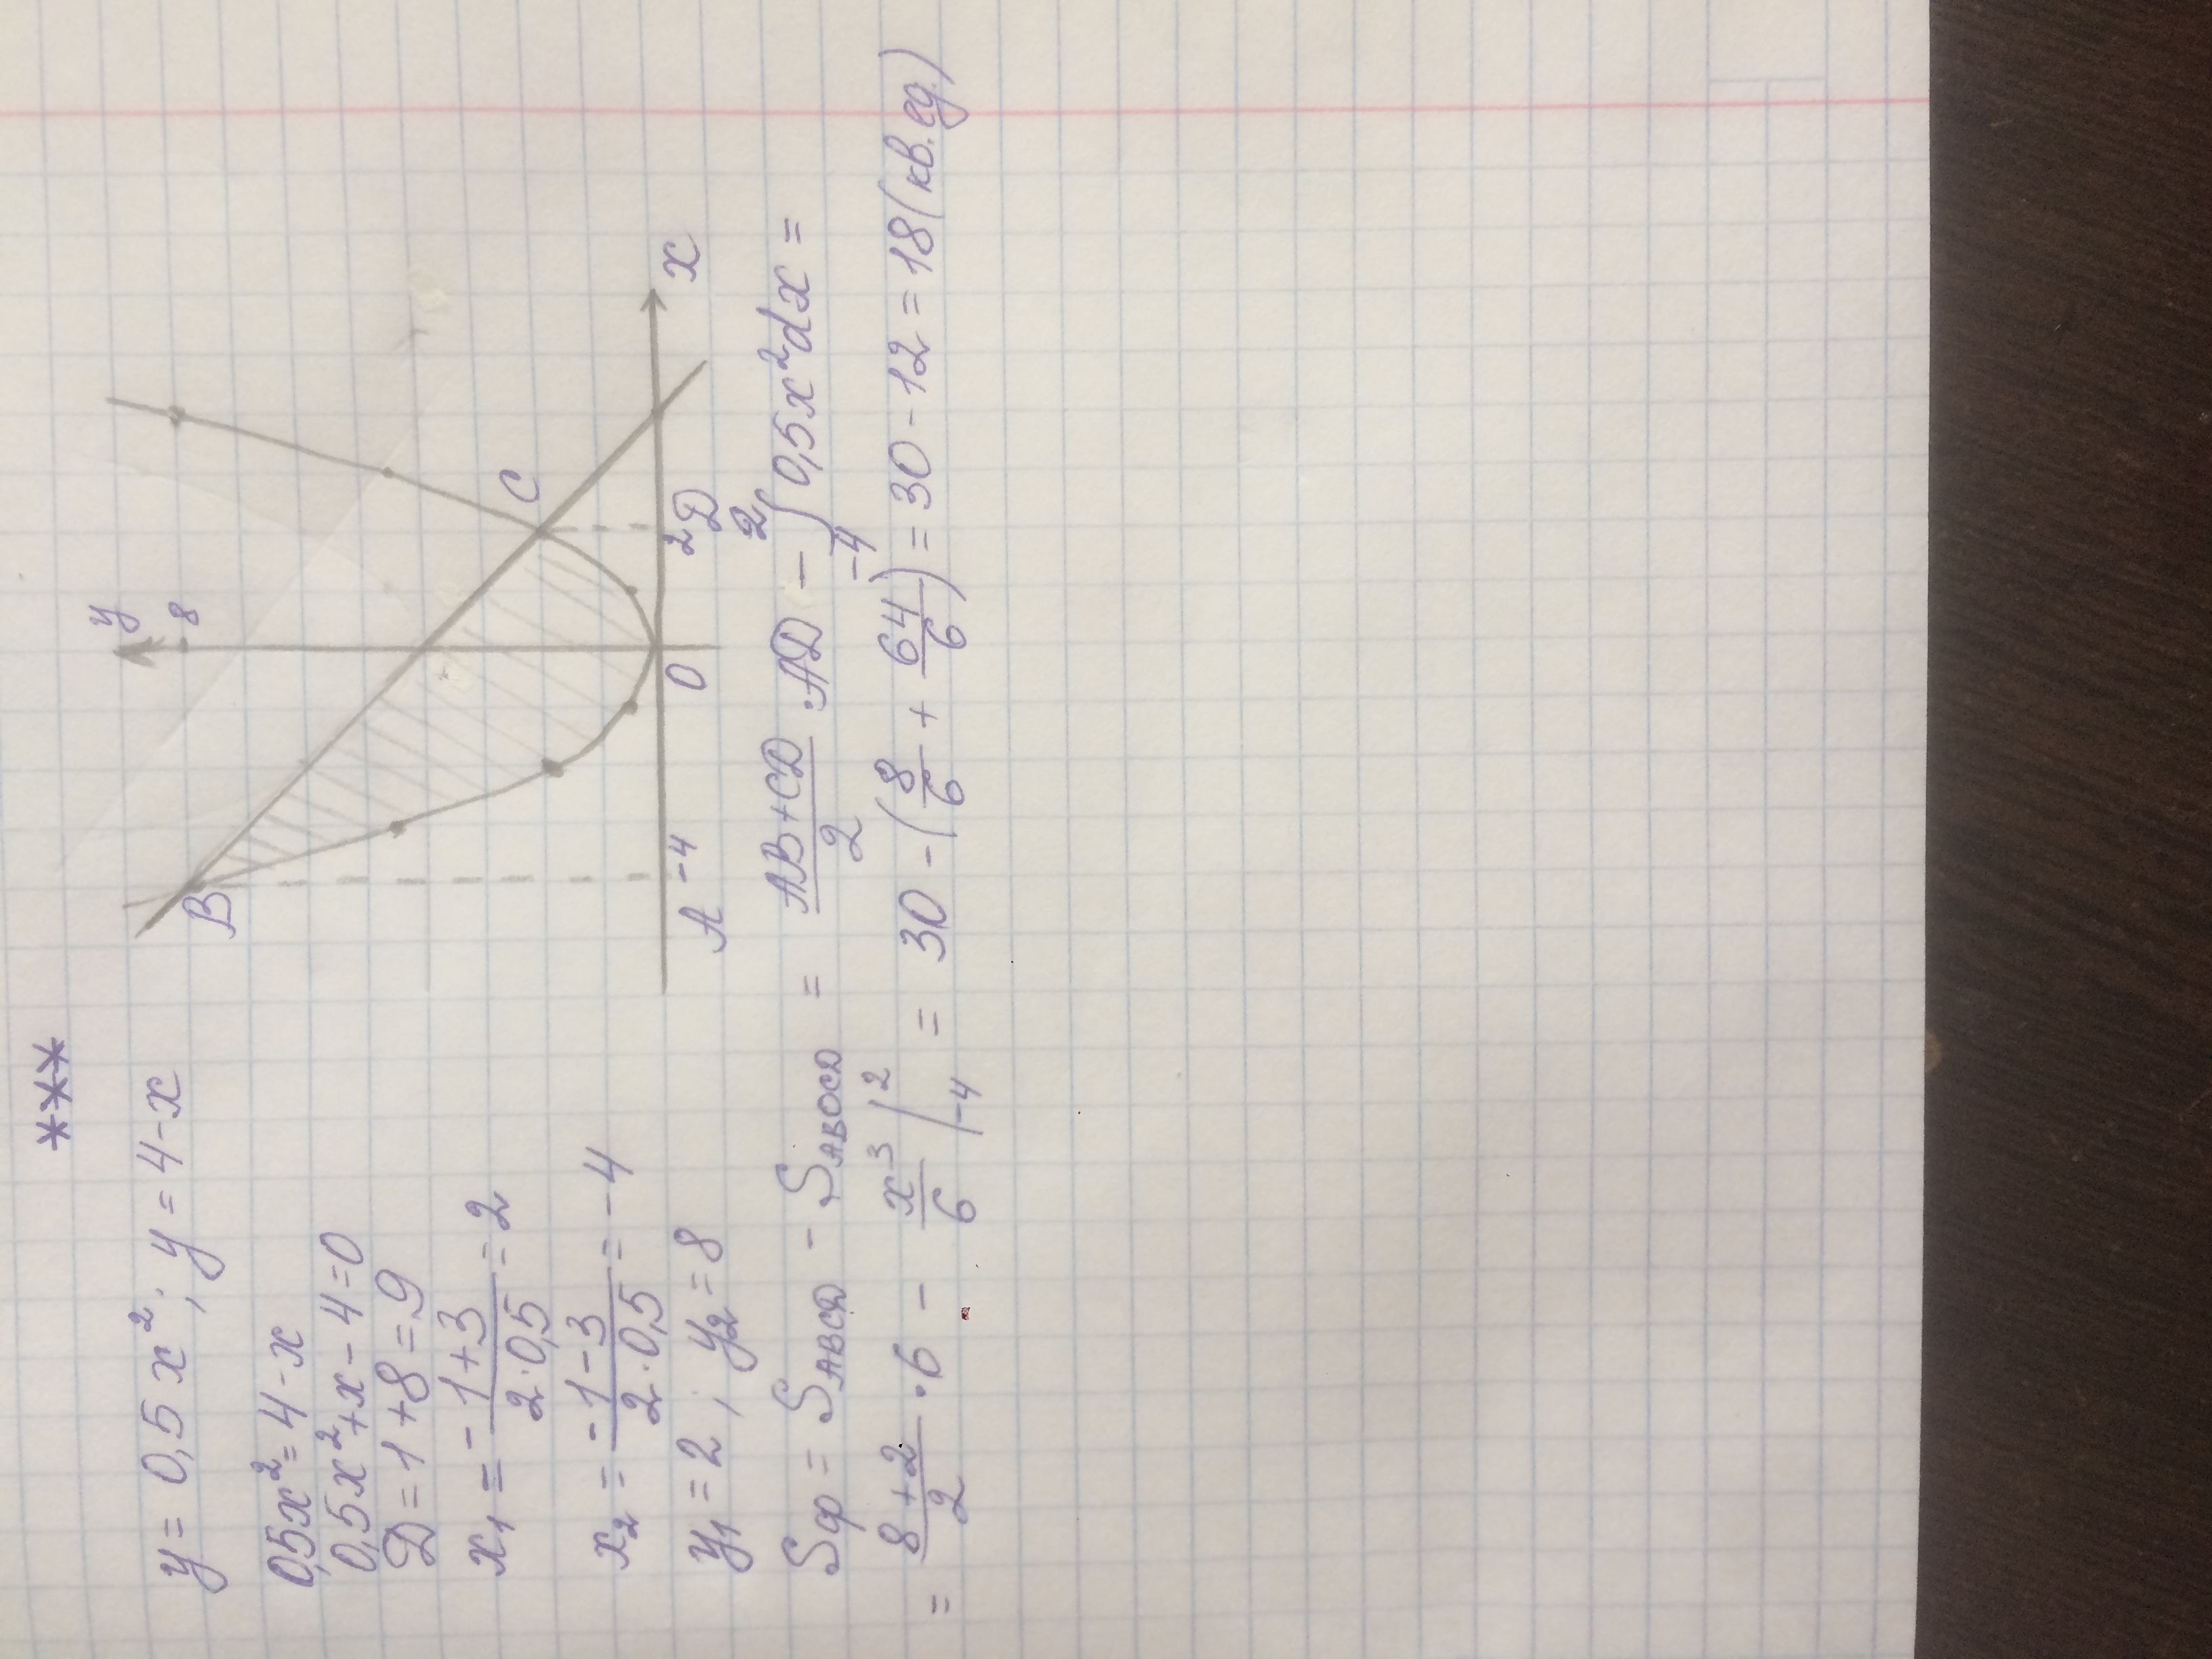 ***
y = 0,5x²; y = 4-x
0,5x² = 4-x
0,5x²+x-4=0
D=1+8=9
x₁ = -1+3 / 2·0,5 = 2
x₂ = -1-3 / 2·0,5 = -4
y₁=2, y₂=8
y
8
B
C
A -4
O
2 D
x
Sф = S_ABCD - S_ABOCD = (AB+CD)/2 · AD - ∫₋₄² 0,5x²dx =
= (8+2)/2 · 6 - x³/6 |₋₄² = 30 - (8/6 + 64/6) = 30-12 = 18 (кв.ед)